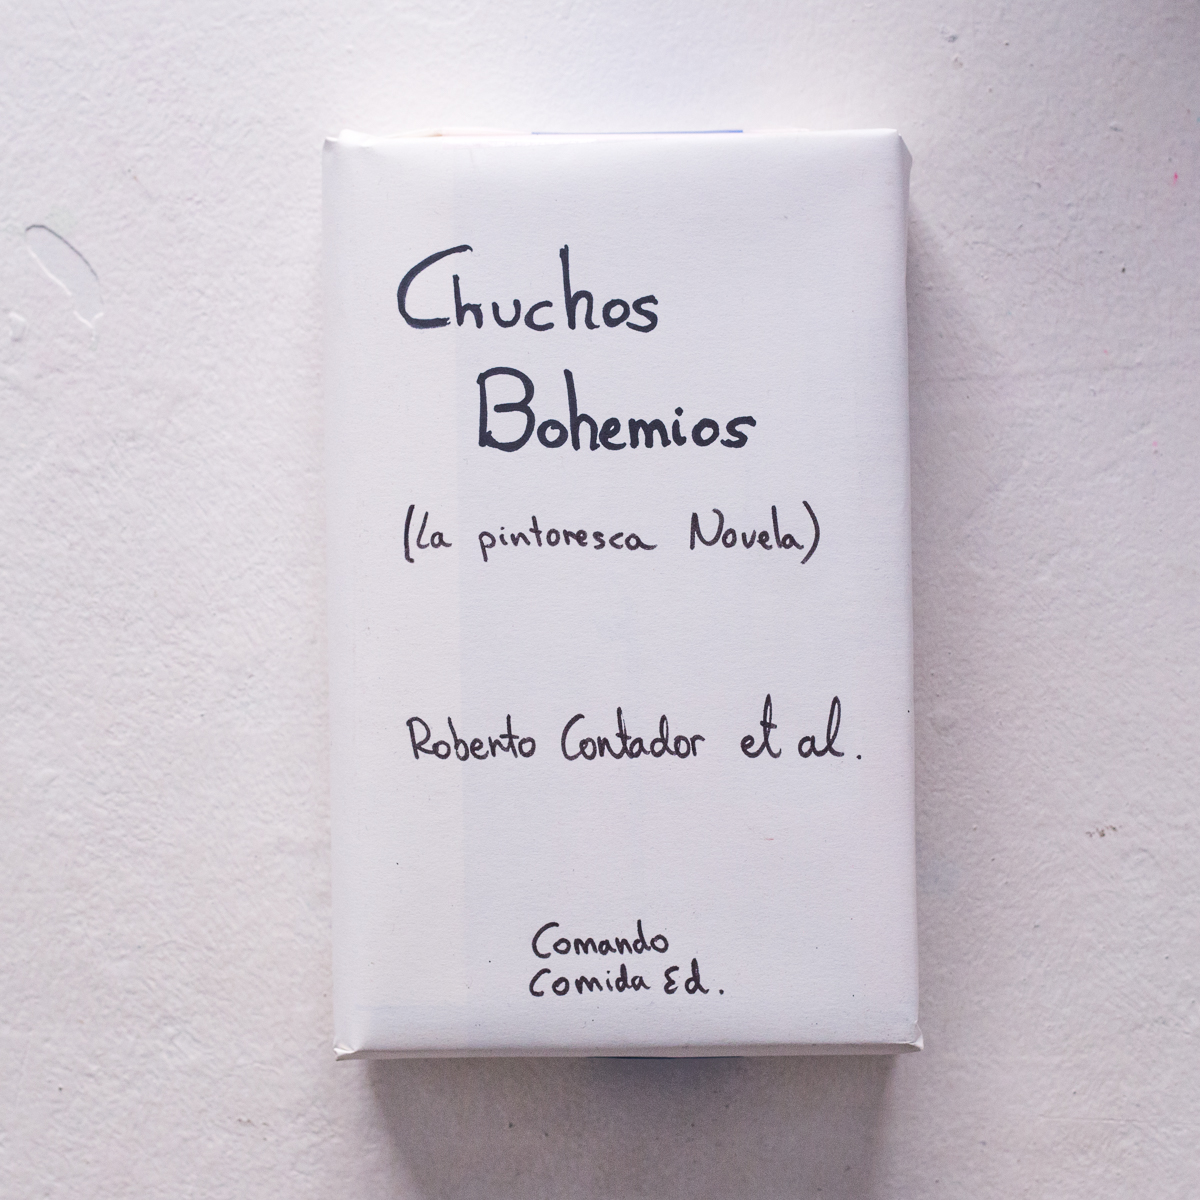 Chuchos
Bohemios
(La pintoresca Novela)
Roberto Contador et al.
Comando
Comida Ed.